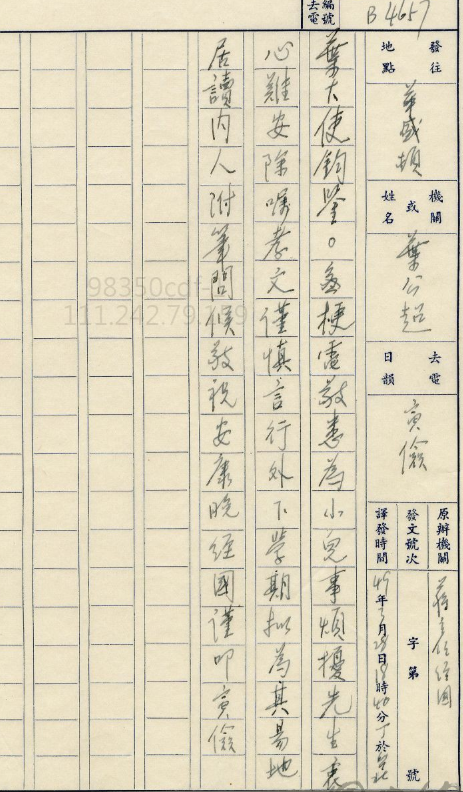 去電編號
B4657
發往地點
華盛頓
機關或姓名
葉公超
去電日韻
寅儉
原辦機關
蔣主任經國
發文號次 字第 號
譯發時間 49年3月28日 時 分 於
葉大使鈞鑒。 梗電敬悉為小兒事煩擾先生衷
心難安除囑孝文謹慎言行外下學期擬為其易地
居讀內人附筆問候敬祝安康晚經國謹叩寅儉
98350cdf-
111.242.79.